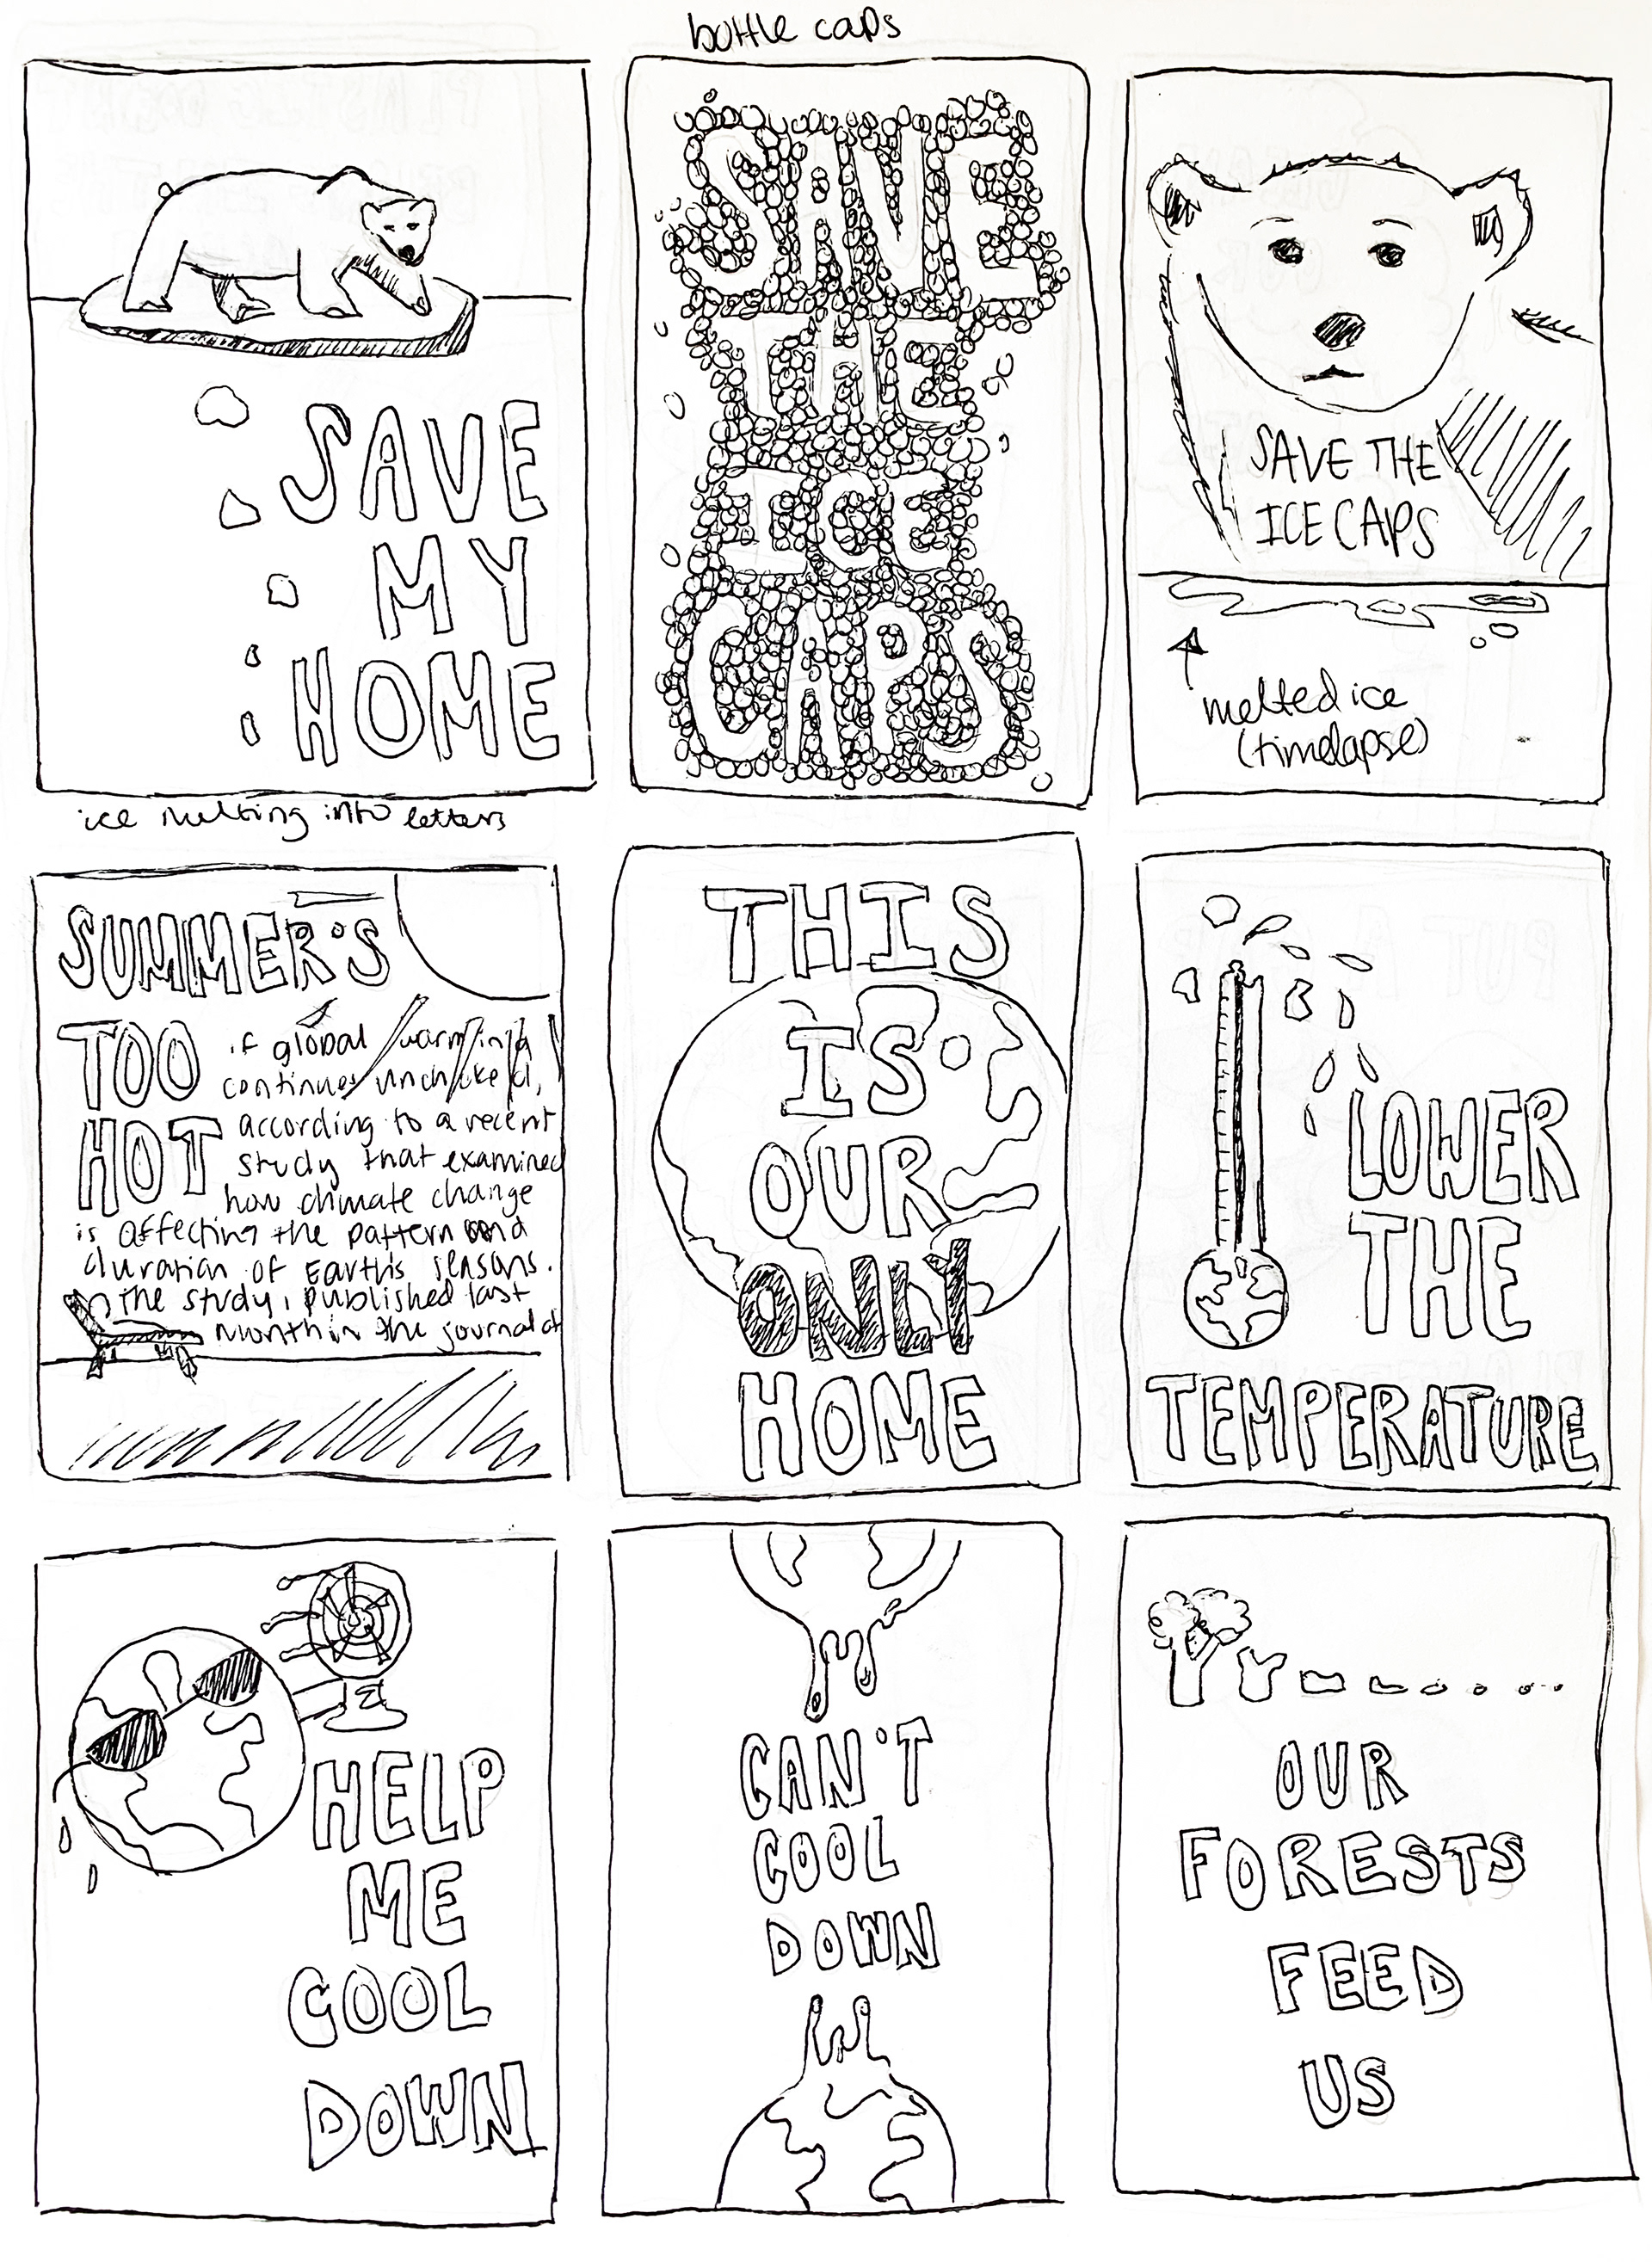 bottle caps
SAVE
MY
HOME
ice melting into letters
SAVE
THE
ICE
CAPS
SAVE THE
ICE CAPS
melted ice
(timelapse)
SUMMER'S
TOO
HOT
if global warming
continues unchecked,
according to a recent
study that examined
how climate change
is affecting the pattern and
duration of Earth's seasons.
The study, published last
month in the journal of
THIS
IS
OUR
ONLY
HOME
LOWER
THE
TEMPERATURE
HELP
ME
COOL
DOWN
CAN'T
COOL
DOWN
OUR
FORESTS
FEED
US